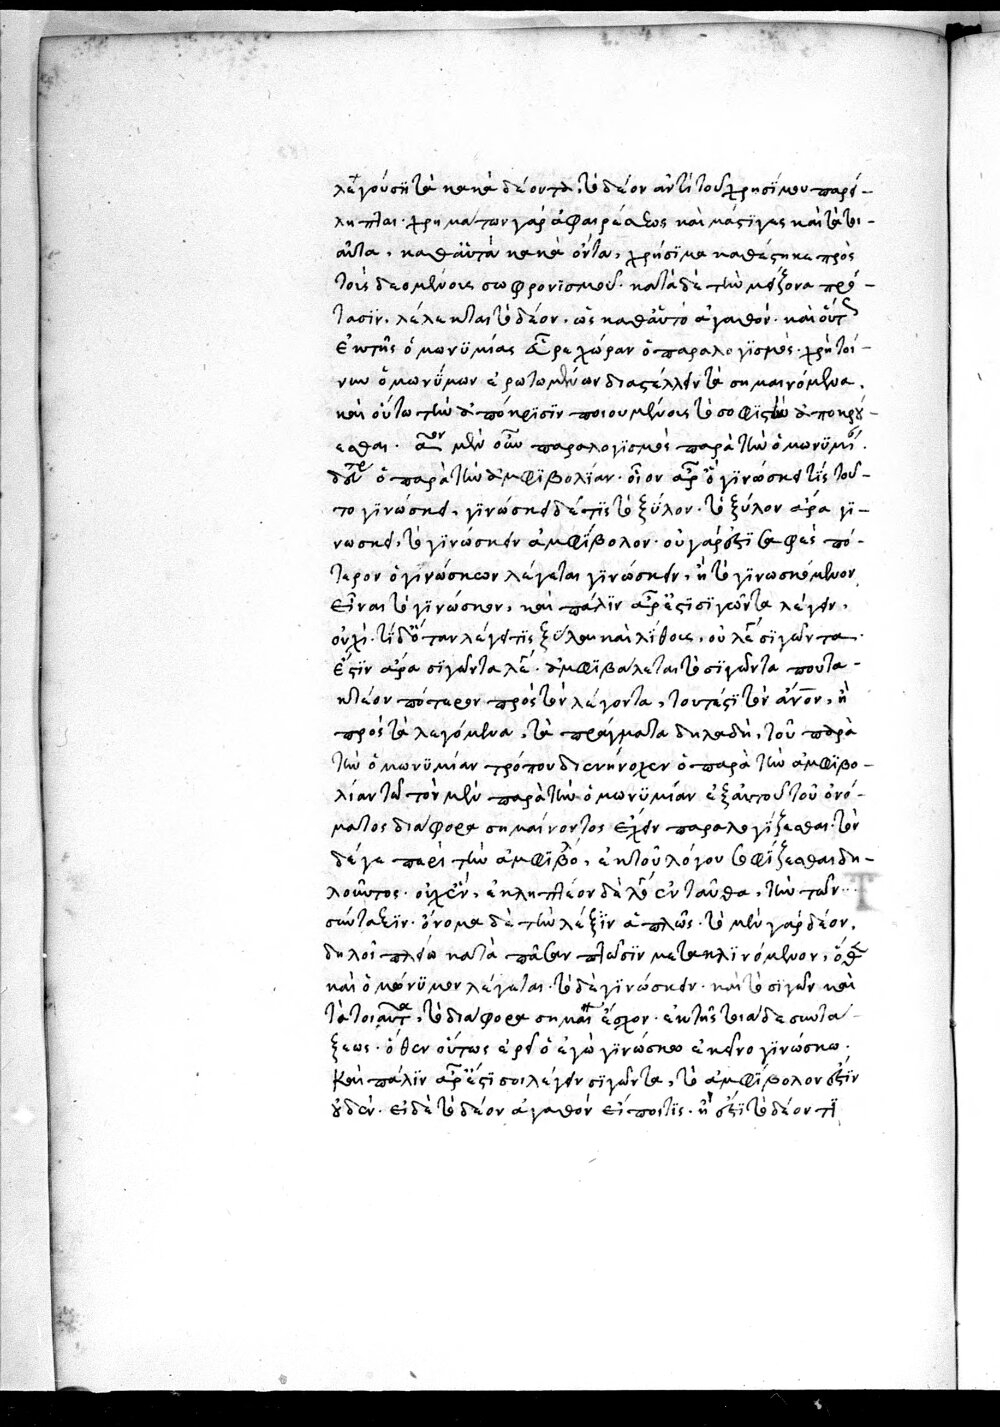 λέγουσι τὰ κακὰ δέοντα, τὸ δέον ἀντὶ τοῦ χρησίμου παρεί-
ληπται· χρημάτων γὰρ ἀφαιρέσεως καὶ μάστιγες καὶ τὰ τοι-
αῦτα, καθ' αὑτὰ κακὰ ὄντα, χρήσιμα καθέστηκε πρὸς
τοὺς δεομένους σωφρονισμοῦ· κατὰ δὲ τὴν μείζονα πρό-
τασιν, λέλεκται τὸ δέον, ὡς καθ' αὑτὸ ἀγαθόν· καὶ οὕτως
ἐκ τῆς ὁμωνυμίας εὗρε χώραν ὁ παραλογισμός· χρὴ τοί-
νυν ὁμωνύμων ἐρωτωμένων διαστέλλειν τὰ σημαινόμενα,
καὶ οὕτω τὴν ἀπόκρισιν ποιουμένους τὸ σοφιστὴν ἀποκρού-
εσθαι· μὲν οὖν παραλογισμὸς παρὰ τὴν ὁμωνυμί
ὁ παρὰ τὴν ἀμφιβολίαν· οἷον ἆρ' ὃ γινώσκει τίς τοῦ-
το γινώσκει, γινώσκει δέ τις τὸ ξύλον· τὸ ξύλον ἄρα γι-
νώσκει, τὸ γινώσκειν ἀμφίβολον· οὐ γάρ ἐστι σαφὲς πό-
τερον ὁ γινώσκων λέγεται γινώσκειν, ἢ τὸ γινωσκόμενον
εἶναι τὸ γινῶσκον, καὶ πάλιν ἆρ' ἔστι σιγῶντα λέγειν,
οὐχί· τί δ' ὅταν λέγῃ τις ξύλου καὶ λίθους, οὐ λέγει σιγῶντα·
ἔστιν ἄρα σιγῶντα λέγειν· ἀμφιβάλεται τὸ σιγῶντα που τα-
κτέον πότερον πρὸς τὸν λέγοντα, τουτέστι τὸν ἄνον, ἢ
πρὸς τὰ λεγόμενα, τὰ πράγματα δηλαδὴ, τοῦ παρὰ
τὴν ὁμωνυμίαν τρόπου διενήνοχεν ὁ παρὰ τὴν ἀμφιβο-
λίαν τῷ τὸν μὲν παρὰ τὴν ὁμωνυμίαν ἐξ αὐτοῦ τοῦ ὀνό-
ματος διάφορα σημαίνοντος ἔχειν παραλογίζεσθαι· τὸν
δέ γε περὶ τὴν ἀμφιβολ, ἐκ τοῦ λόγου σοφίζεσθαι δη-
λοῦντος· οὐχ ἕν, ἐκληπτέον δὲ λόγον ἐνταῦθα, τὴν τῶν
σύνταξιν· ὄνομα δὲ τὴν λέξιν ἁπλῶς· τὸ μὲν γὰρ δέον,
δηλοῖ πλείω κατὰ πᾶσαν πτῶσιν μετακλινόμενον, ὅθεν
καὶ ὁμώνυμον λέγεται· τὸ δὲ γινώσκειν· καὶ τὸ σιγῶν καὶ
τὰ τοιαῦτα, τὸ διάφορα σημαίνειν ἔσχον· ἐκ τῆς τοιᾶδε συντά-
ξεως· ὅθεν οὕτως ἐρεῖ ὃ ἐγὼ γινώσκω ἐκεῖνο γινώσκω·
Καὶ πάλιν ἆρ' ἔστι σοι λέγειν σιγῶντα, τὸ ἀμφίβολόν ἐστιν
οὐδέν· εἰ δὲ τὸ δέον ἀγαθὸν εἴποι τις· ἢ ἐστὶ τὸ δέον τι